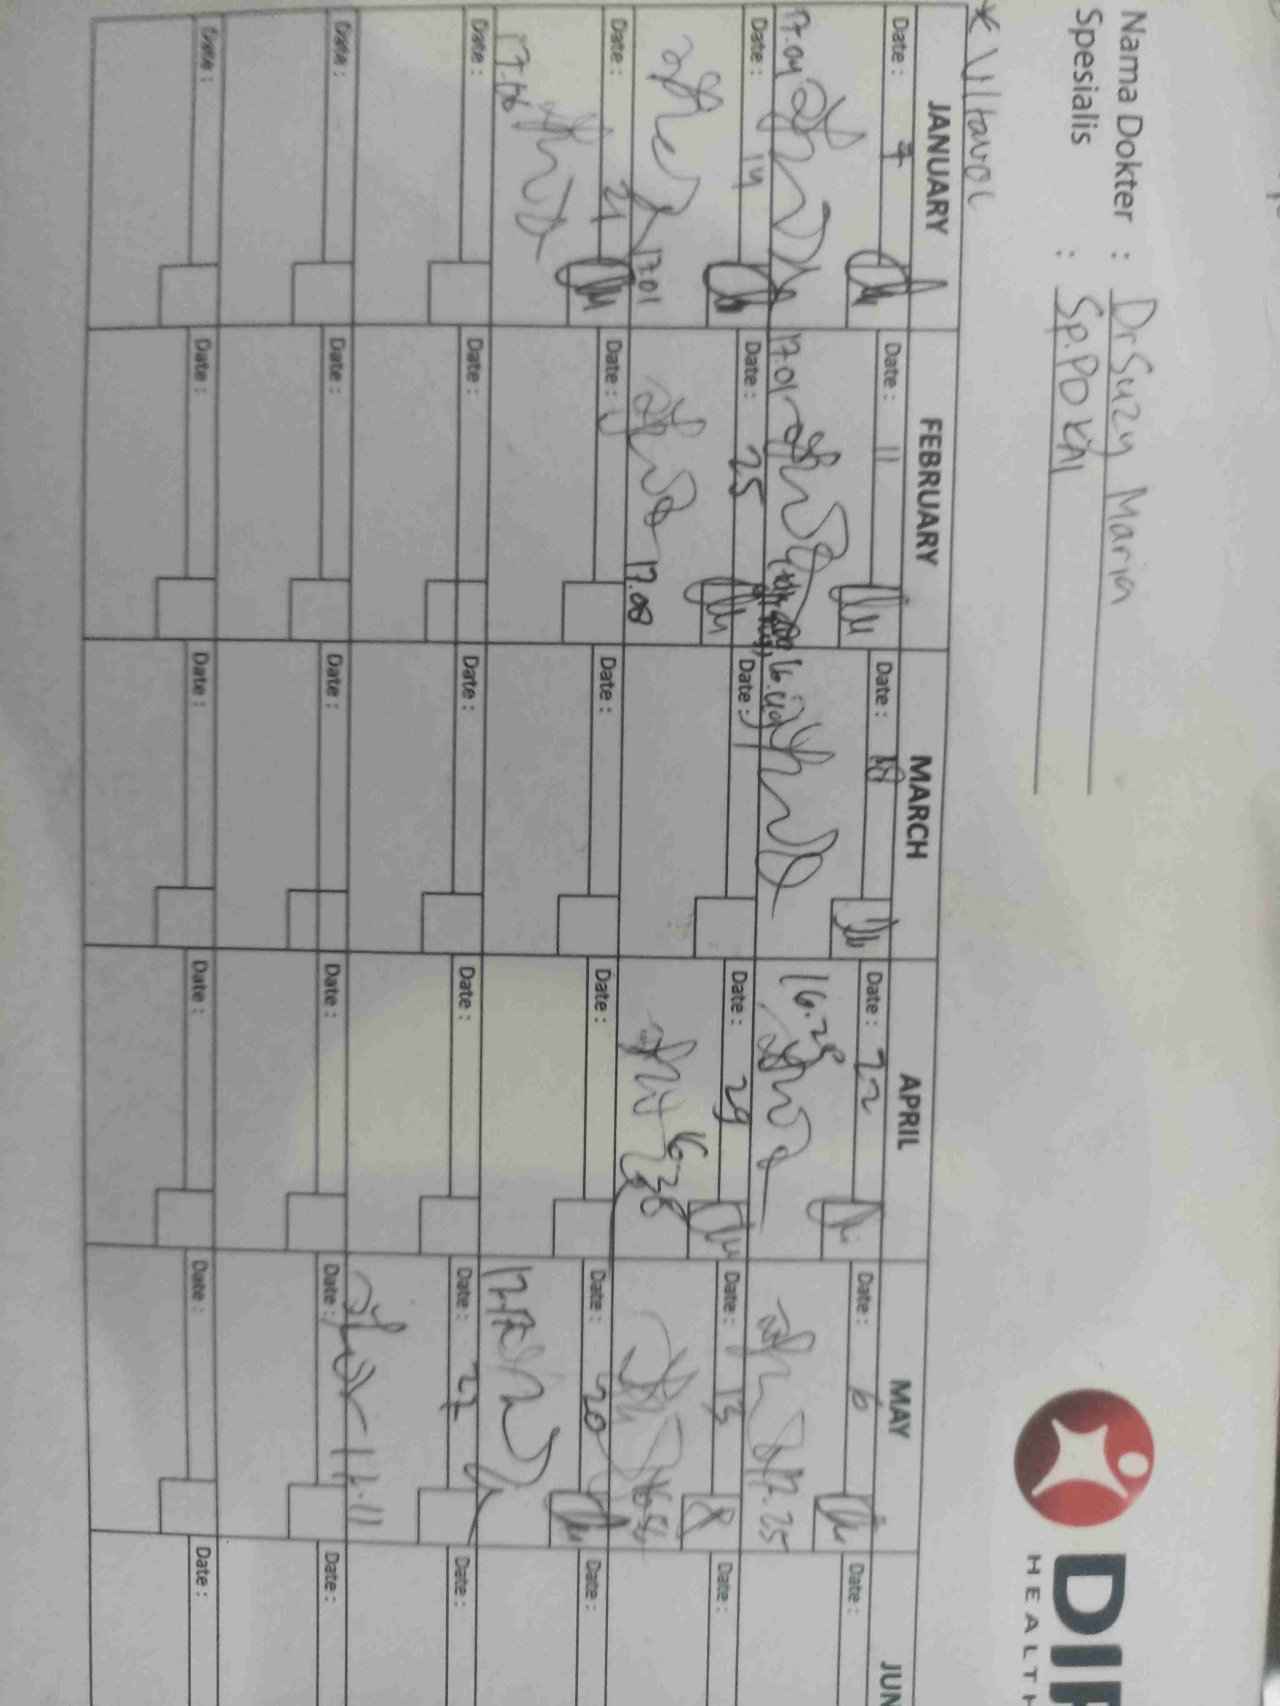 Nama Dokter : Dr Suzy Maria
Spesialis : Sp.PD KAI
DI
HEALTH
JANUARY FEBRUARY MARCH APRIL MAY JUN
Date : 7 Date : 11 Date : 18 Date : 22 Date : 6 Date :
17.04 17.01 16.49 16.28 17.25
Date : 14 Date : 25 Date : Date : 29 Date : 13 Date :
17.01 17.08 16.38 16.56
Date : 21 Date : Date : Date : Date : 20 Date :
17.06 17.17
Date : Date : Date : Date : Date : 27 Date :
17.11
Date : Date : Date : Date : Date : Date :
Date : Date : Date : Date : Date : Date :